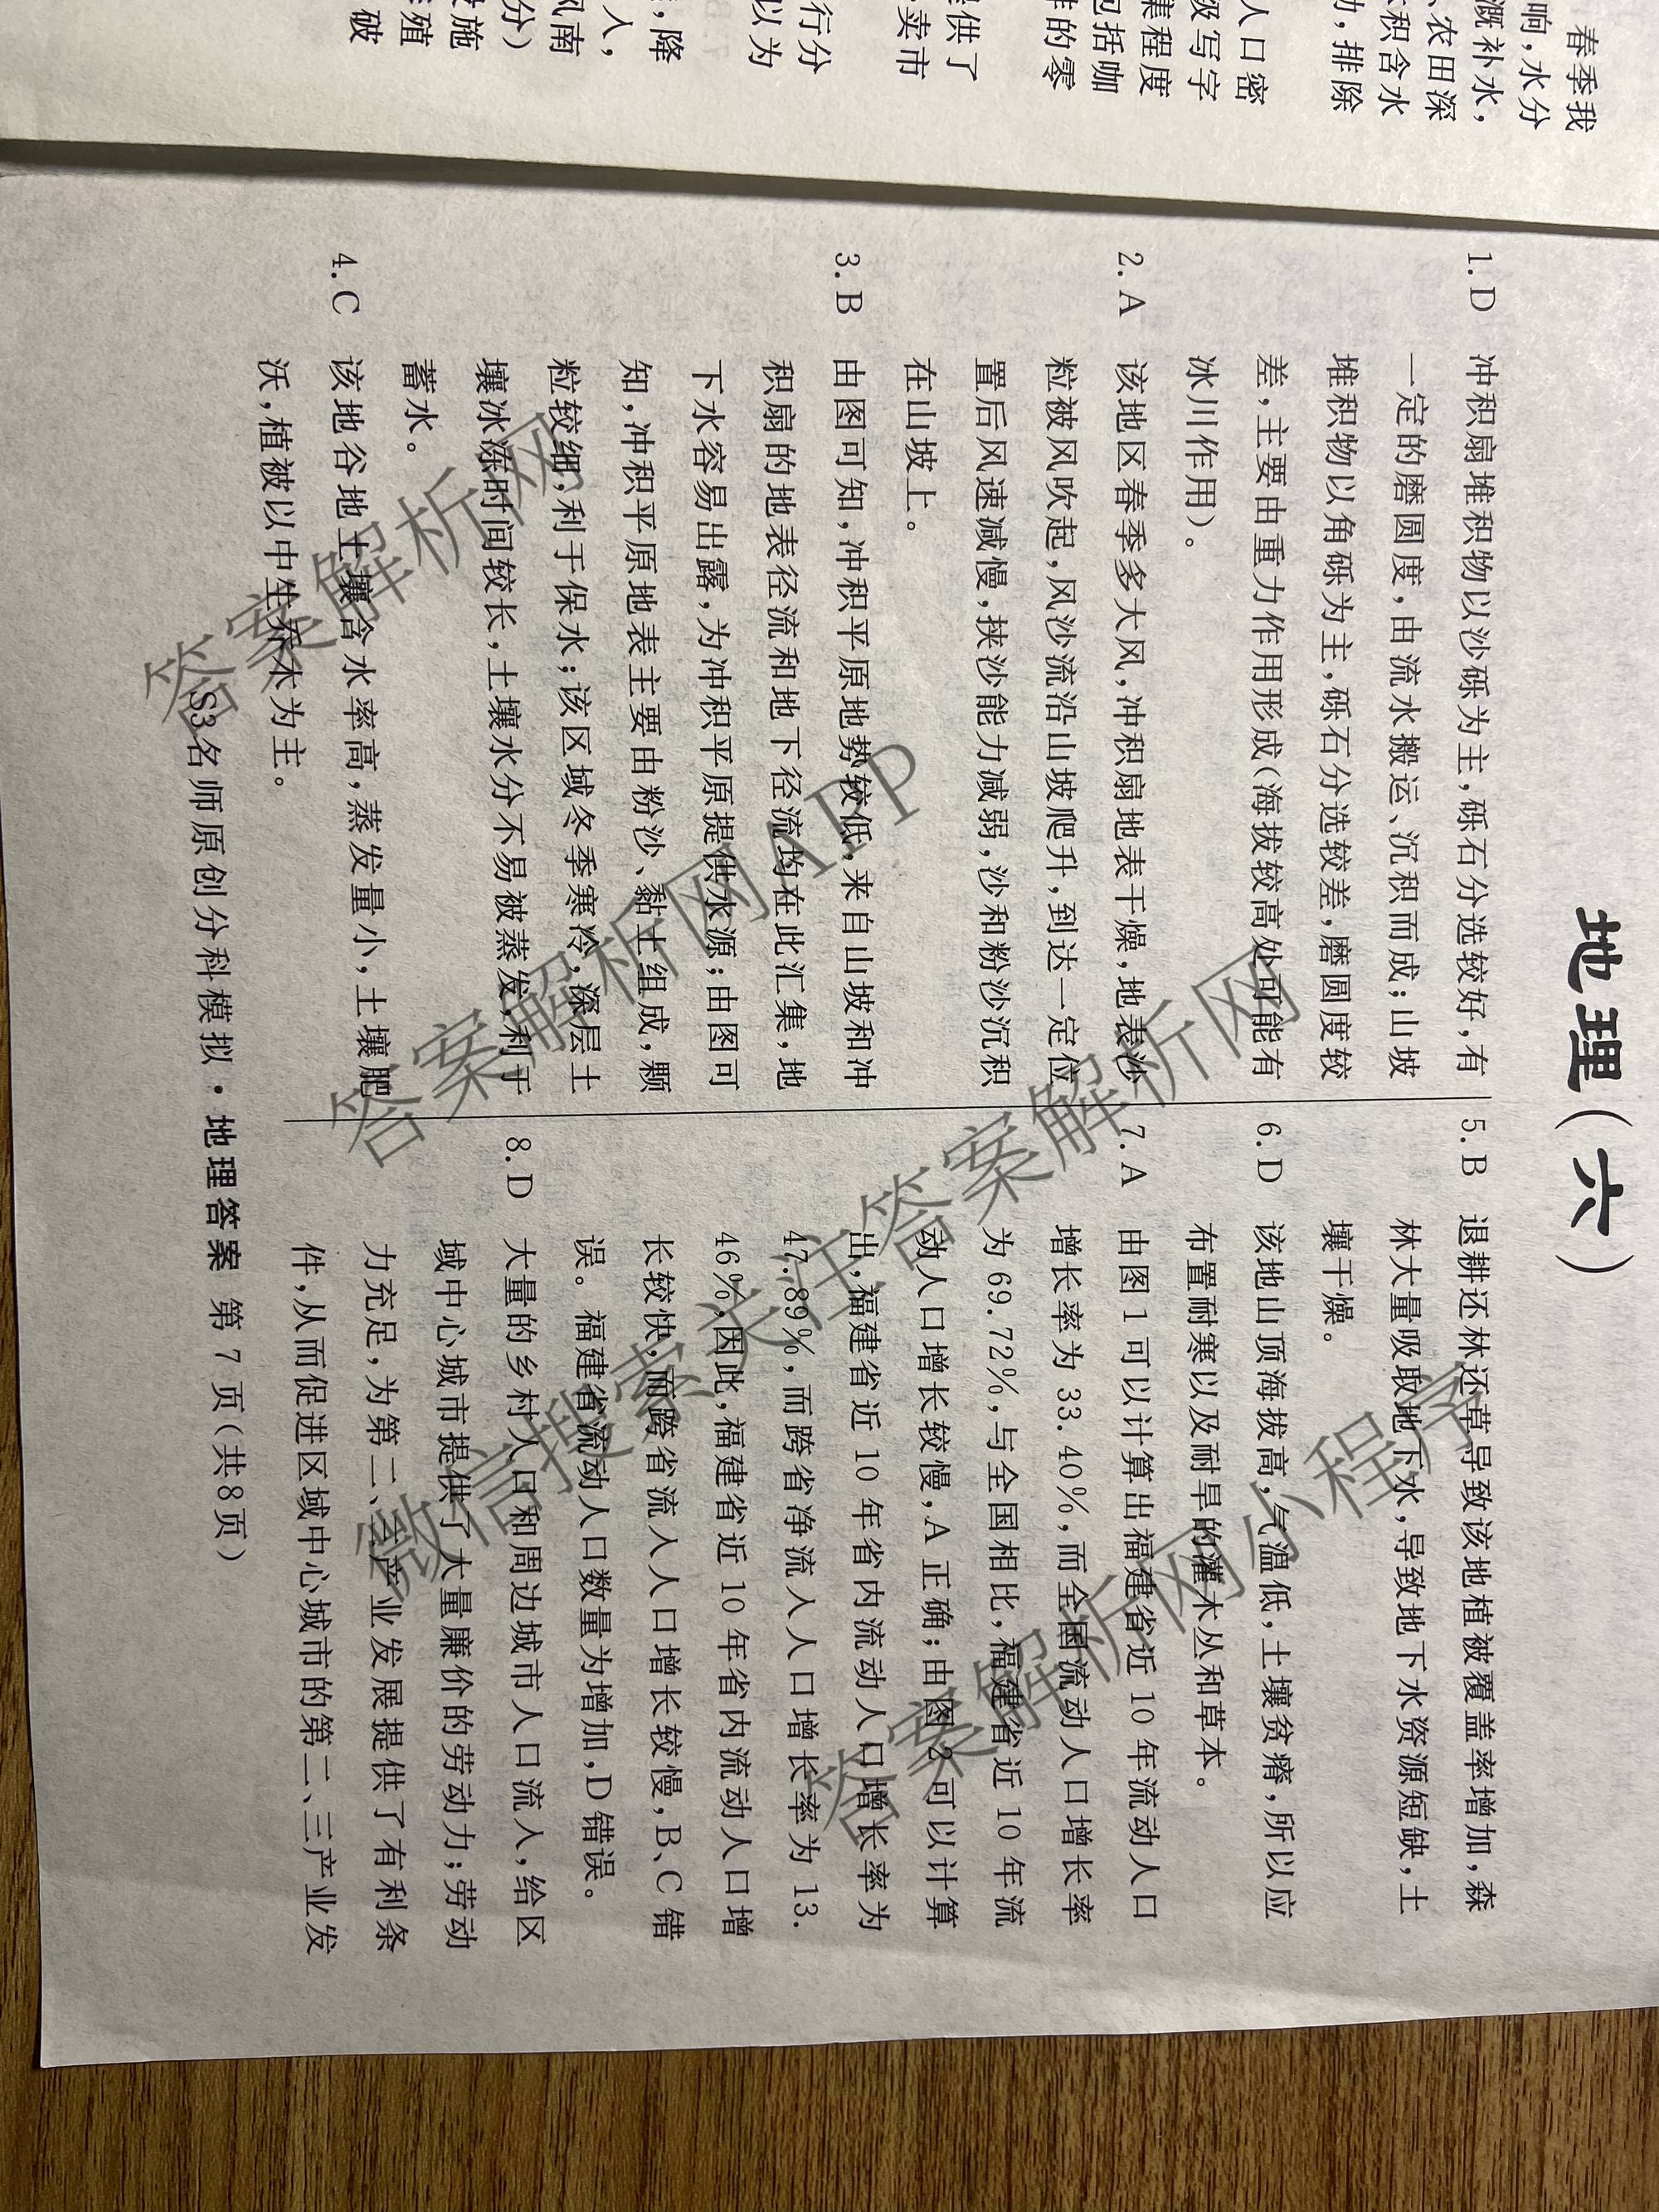 春季我
响,水分
溉补水,
农田深
积含水
排除
人口密
级写字
集程度
包括咖
的零
提供了
卖市
行分
以为
降
人,
风南
分)
施
殖
破
地理(六)
1.D 冲积扇堆积物以沙砾为主,砾石分选较好,有
一定的磨圆度,由流水搬运、沉积而成;山坡
堆积物以角砾为主,砾石分选较差,磨圆度较
差,主要由重力作用形成(海拔较高处可能有
冰川作用)。
2.A 该地区春季多大风,冲积扇地表干燥,地表沙
粒被风吹起,风沙流沿山坡爬升,到达一定位
置后风速减慢,挟沙能力减弱,沙和粉沙沉积
在山坡上。
3.B 由图可知,冲积平原地势较低,来自山坡和冲
积扇的地表径流和地下径流均在此汇集,地
下水容易出露,为冲积平原提供水源;由图可
知,冲积平原地表主要由粉沙、黏土组成,颗
粒较细,利于保水;该区域冬季寒冷,深层土
壤冰冻时间较长,土壤水分不易被蒸发,利于
蓄水。
4.C 该地谷地土壤含水率高,蒸发量小,土壤肥
沃,植被以中生乔木为主。
5.B 退耕还林还草导致该地植被覆盖率增加,森
林大量吸取地下水,导致地下水资源短缺,土
壤干燥。
6.D 该地山顶海拔高,气温低,土壤贫瘠,所以应
布置耐寒以及耐旱的灌木丛和草本。
7.A 由图1可以计算出福建省近10年流动人口
增长率为33.40%,而全国流动人口增长率
为69.72%,与全国相比,福建省近10年流
动人口增长较慢,A正确;由图2可以计算
出,福建省近10年省内流动人口增长率为
47.89%,而跨省净流入人口增长率为13.
46%,因此,福建省近10年省内流动人口增
长较快,而跨省流入人口增长较慢,B、C错
误。福建省流动人口数量为增加,D错误。
8.D 大量的乡村人口和周边城市人口流入,给区
域中心城市提供了大量廉价的劳动力;劳动
力充足,为第二、三产业发展提供了有利条
件,从而促进区域中心城市的第二、三产业发
S3名师原创分科模拟·地理答案 第7页(共8页)
答案解析网
答案解析网APP
微信搜索关注答案解析网
答案解析网小程序